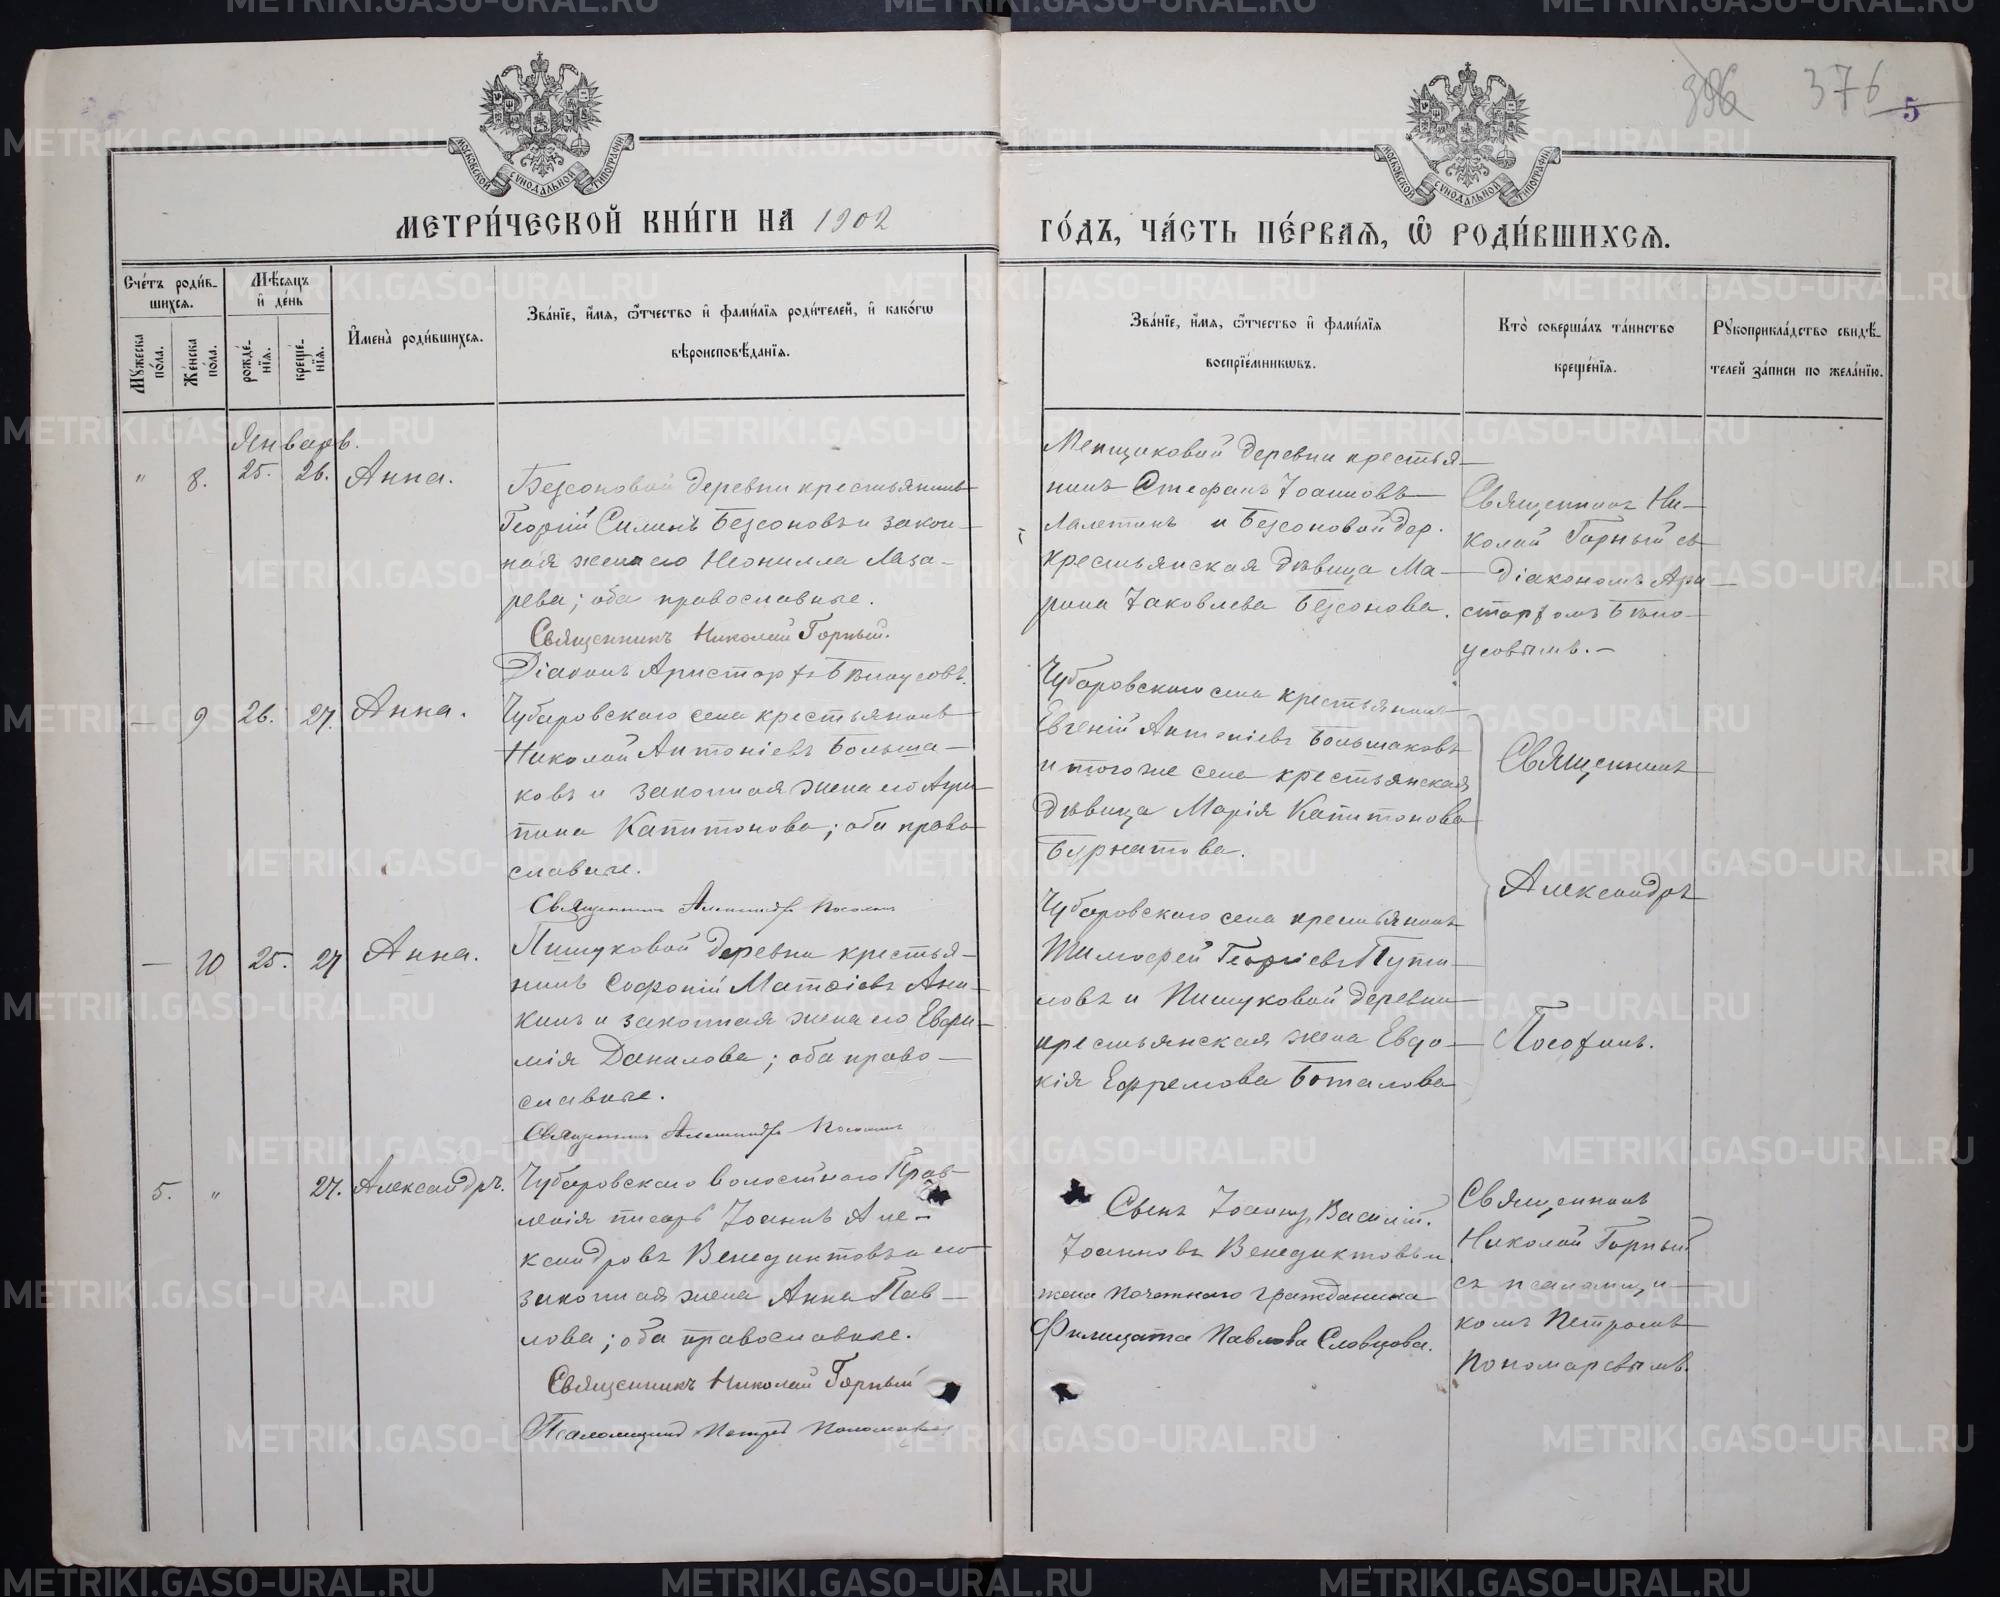 396 376 5
МОСКОВСКОЙ СѴНОДАЛЬНОЙ ТИПОГРАФІИ
МОСКОВСКОЙ СѴНОДАЛЬНОЙ ТИПОГРАФІИ
МЕТРИ́ЧЕСКОЙ КНИ́ГИ НА 1902
ГО́ДЪ, ЧА́СТЬ ПЕ́РВАѦ, Ѽ РОДИ́ВШИХСѦ.
Сче́тъ роди́в-
шихсѧ.
Мѣ́сѧцъ
и҆ де́нь
Мꙋ́жеска
по́ла.
Же́нска
по́ла.
рожде́-
нїѧ.
креще́-
нїѧ.
И҆мена̀ роди́вшихсѧ.
Зва́нїе, и҆́мѧ, ѻ҆́тчество и҆ фами́лїѧ роди́телей, и҆ како́гѡ
вѣроисповѣ́данїѧ.
Зва́нїе, и҆́мѧ, ѻ҆́тчество и҆ фами́лїѧ
воспрїе́мникѡвъ.
Кто̀ соверша́лъ та́инство
креще́нїѧ.
Рꙋкоприкла́дство свидѣ́-
телей за́писи по жела́нїю.
Январь.
" 8. 25. 26. Анна.
Безсоновой деревни крестьянинъ
Георгій Силинъ Безсоновъ и закон-
ная жена его Неонилла Лаза-
рева; оба православные.
Священникъ Николай Горный.
Діаконъ Аристархъ Бѣлоусовъ.
Менщиковой деревни крестья-
нинъ Стефанъ Іоанновъ
Лалетинъ и Безсоновой дер.
крестьянская дѣвица Ма-
рина Іаковлева Безсонова.
Священникъ Ни-
колай Горный съ
діакономъ Ари-
стархомъ Бѣло-
усовымъ.-
— 9 26. 27. Анна.
Чубаровскаго села крестьянинъ
Николай Антоніевъ Больша-
ковъ и законная жена его Агри-
пина Капитонова; оба право
славные.
Священникъ Александръ
Чубаровскаго села крестьянинъ
Евгеній Антоніевъ Большаковъ
и того же села крестьянская
дѣвица Марія Капитонова
Бурнатова.
Священникъ
Александръ
— 10 25. 27 Анна.
Пишуковой деревни крестья-
нинъ Софоній Матѳіевъ Ани-
кинъ и законная жена его Евфи-
мія Данилова; оба право-
славные.
Священникъ Александръ
Чубаровскаго села крестьянинъ
Тимофей Георгіевъ Пути-
ловъ и Пишуковой деревни
крестьянская жена Евдо-
кія Ефремова Боталова
5. " 27. Александръ.
Чубаровскаго волостнаго Прав-
ленія писарь Іоаннъ Але-
ксандровъ Венедиктовъ и его
законная жена Анна Пав-
лова; оба православные.
Священникъ Николай Горный
Псаломщикъ Петръ Пономаревъ
Сынъ Іоанна, Василій.
Іоанновъ Венедиктовъ и
жена почетнаго гражданина
Филицата Павлова Словцова.
Священникъ
Николай Горный
съ псаломщи-
комъ Петромъ
Пономаревымъ.
METRIKI.GASO-URAL.RU